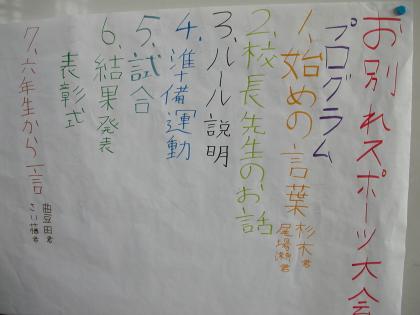 お別れスポーツ大会
プログラム
1、始めの言葉
杉木君
尾場瀬君
2、校長先生のお話
3、ルール説明
4、準備運動
5、試合
6、結果発表
表彰式
7、六年生から一言
豊田君
さい藤君